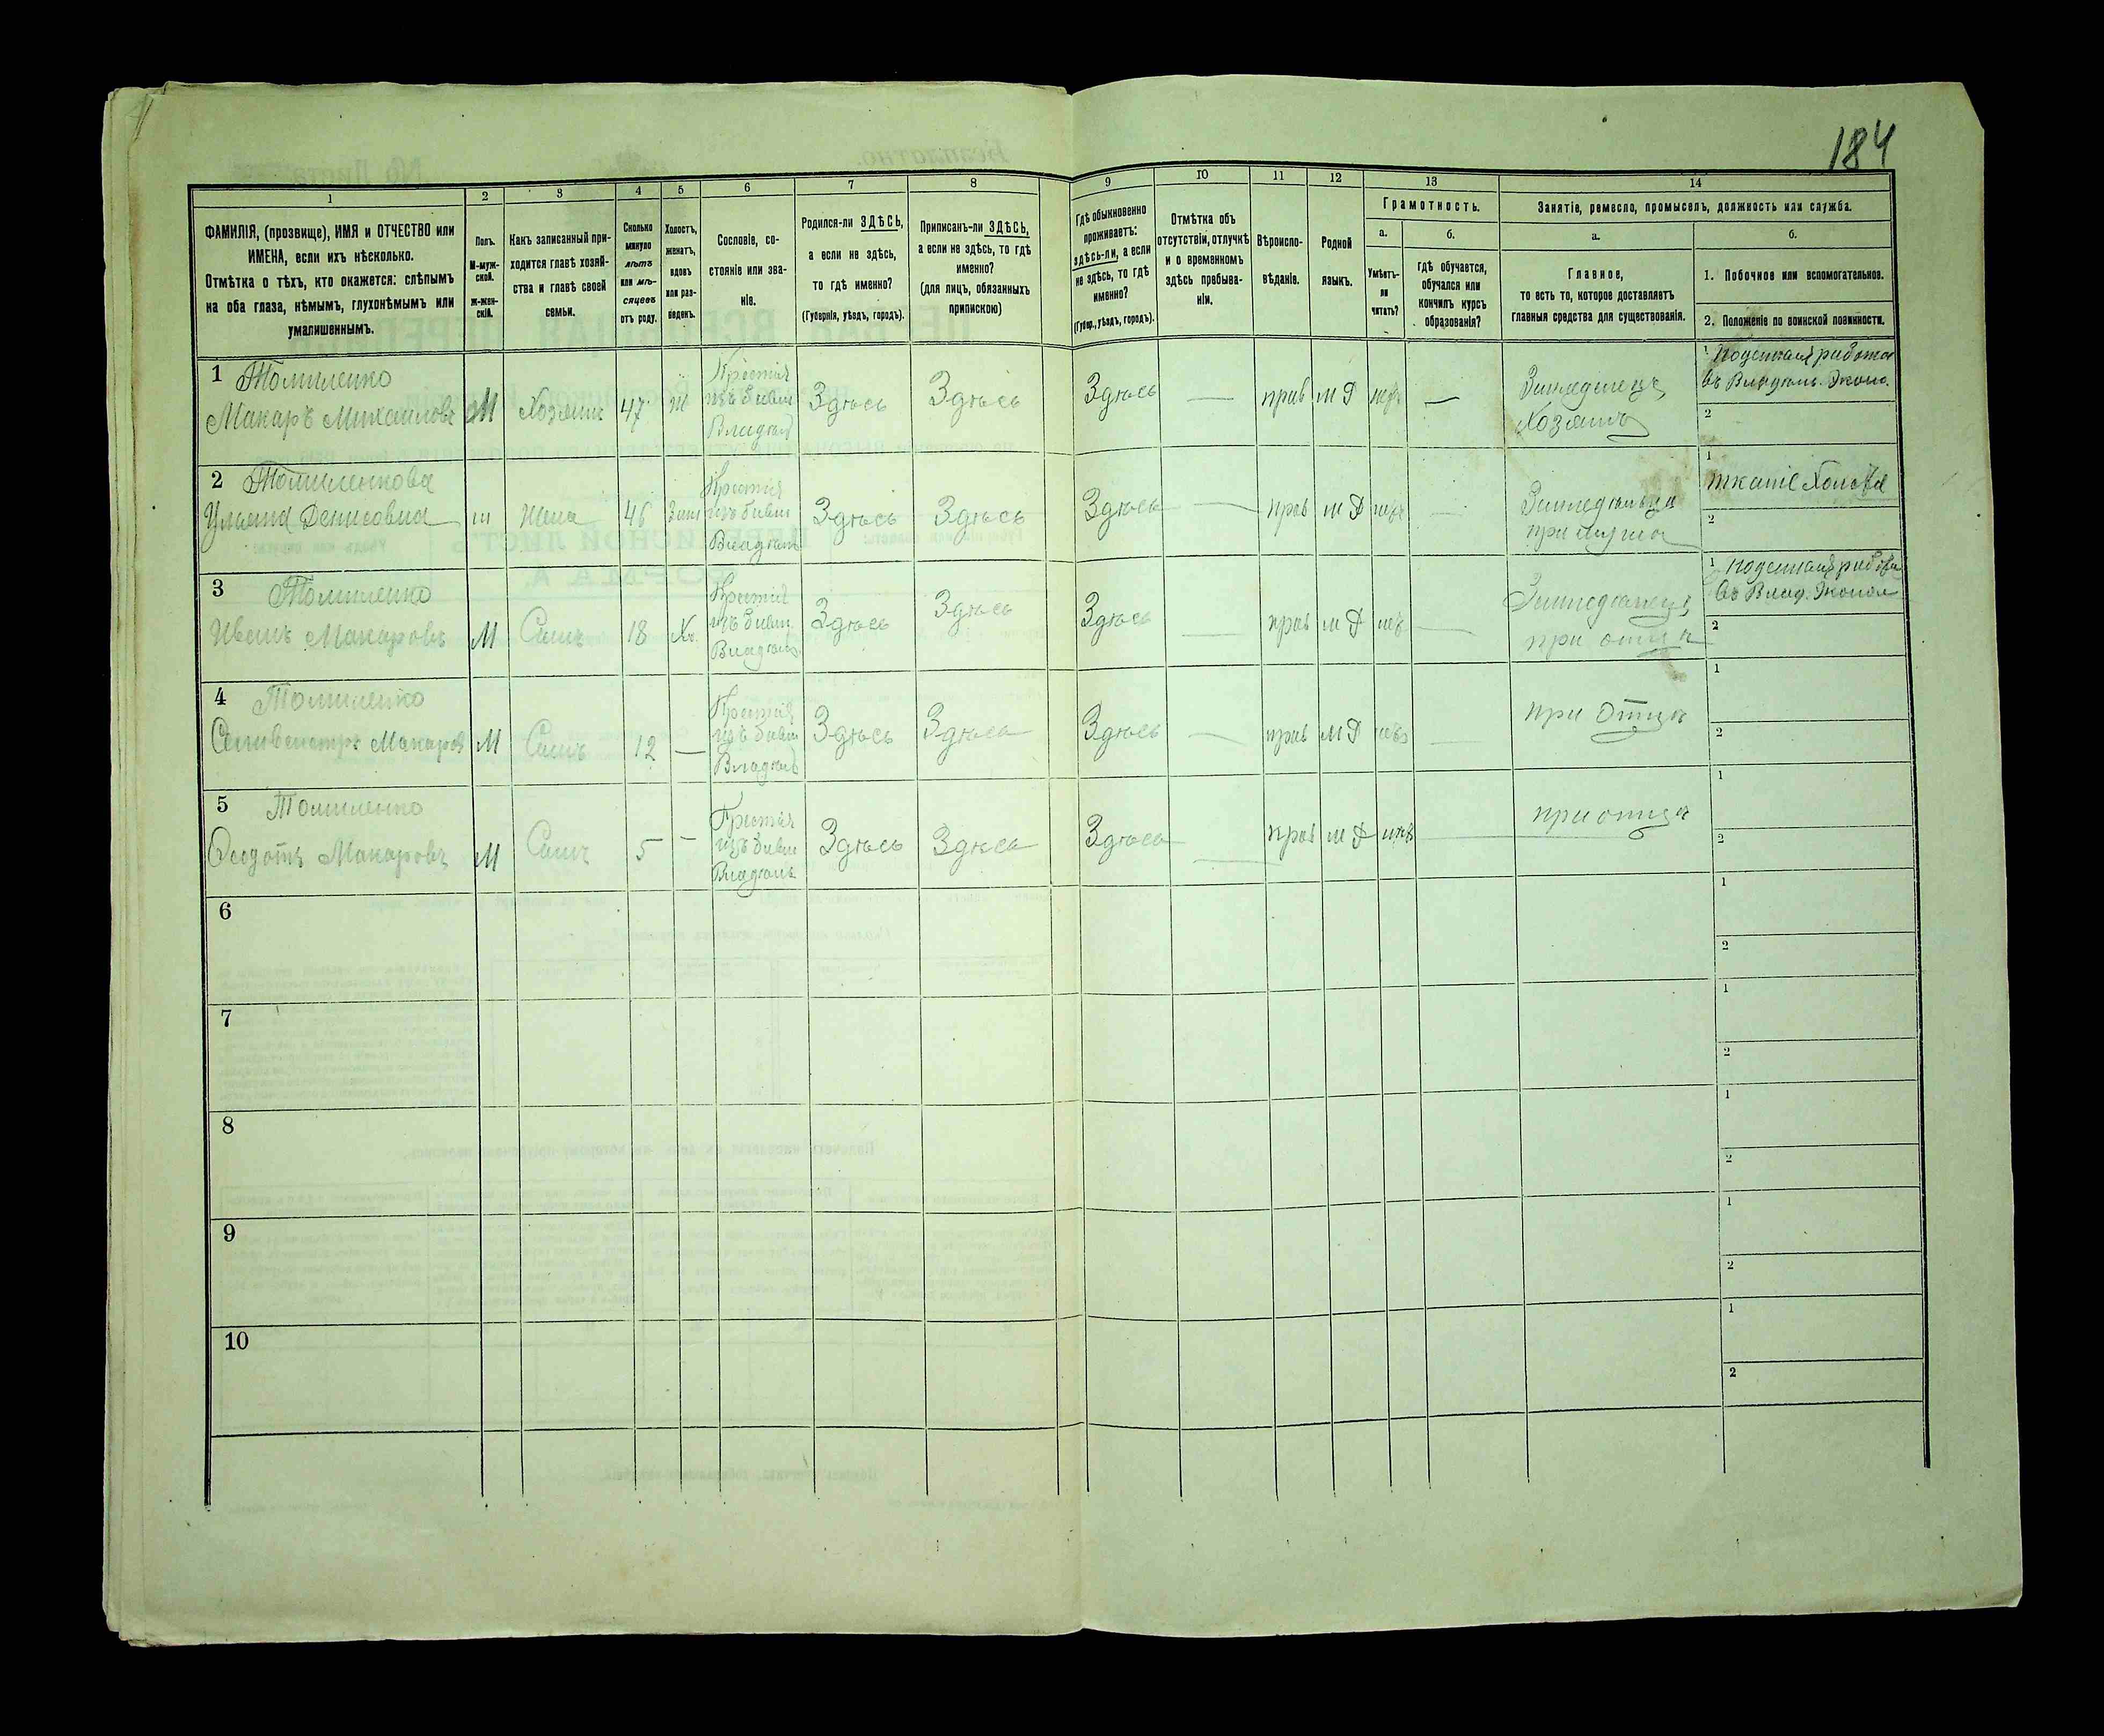 184
1 2 3 4 5 6 7 8 9 10 11 12 13 14
ФАМИЛІЯ, (прозвище), ИМЯ и ОТЧЕСТВО или
ИМЕНА, если ихъ нѣсколько.
Отмѣтка о тѣхъ, кто окажется: слѣпымъ
на оба глаза, нѣмымъ, глухонѣмымъ или
умалишеннымъ.
Полъ.
М-муж-
ской.
ж-жен-
скій.
Какъ записанный при-
ходится главѣ хозяй-
ства и главѣ своей
семьи.
Сколько
минуло
лѣтъ
или мѣ-
сяцевъ
отъ роду.
Холостъ,
женатъ,
вдовъ
или раз-
веденъ.
Сословіе, со-
стояніе или зва-
ніе.
Родился-ли ЗДѢСЬ,
а если не здѣсь,
то гдѣ именно?
(Губернія, уѣздъ, городъ).
Приписанъ-ли ЗДѢСЬ,
а если не здѣсь, то гдѣ
именно?
(для лицъ, обязанныхъ
припискою)
Гдѣ обыкновенно
проживаетъ:
здѣсь-ли, а если
не здѣсь, то гдѣ
именно?
(Губер., уѣздъ, городъ).
Отмѣтка объ
отсутствіи, отлучкѣ
и о временномъ
здѣсь пребыва-
ніи.
Вѣроиспо-
вѣданіе.
Родной
языкъ.
Грамотность.
а.
Умѣетъ-
ли
читать?
б.
гдѣ обучается,
обучался или
кончилъ курсъ
образованія?
Занятіе, ремесло, промыселъ, должность или служба.
а.
Главное,
то есть то, которое доставляетъ
главныя средства для существованія.
б.
1. Побочное или вспомогательное.
2. Положеніе по воинской повинности.
1 Томиленко
Макаръ Михаиловъ М Хозяинъ 47 ж
Крестья
изъ бывш
Владѣл
Здѣсь Здѣсь Здѣсь — прав м Р нѣт —
Земледелецъ
Хозяинъ
1 поденная работа
въ Владѣль. Эконо.
2
2 Томиленкова
Ульяна Денисовна ж Жена 46 Зам
Крестья
изъ бывш
Владѣль
Здѣсь Здѣсь Здѣсь — прав м Р нѣт —
Земледѣльца
при мужѣ
1
тканіе Холста
2
3 Томиленко
Иванъ Макаровъ М Сынъ 18 Х.
Крестья
изъ бывш.
Владѣль
Здѣсь Здѣсь Здѣсь — прав м Р нѣт —
Земледѣлецъ
при отцѣ
1 поденная работа
въ Влад. Эконом
2
4 Томиленко
Селивестръ Макаров М Сынъ 12 —
Крестья
изъ бывш
Владѣль
Здѣсь Здѣсь Здѣсь — прав м Р нѣт —
при Отцѣ
1
2
5 Томиленко
Ѳеодотъ Макаровъ М Сынъ 5 —
Крестья
изъ бывш
Владѣль
Здѣсь Здѣсь Здѣсь — прав м Р нѣт —
при отцѣ
1
2
6
1
2
7
1
2
8
1
2
9
1
2
10
1
2